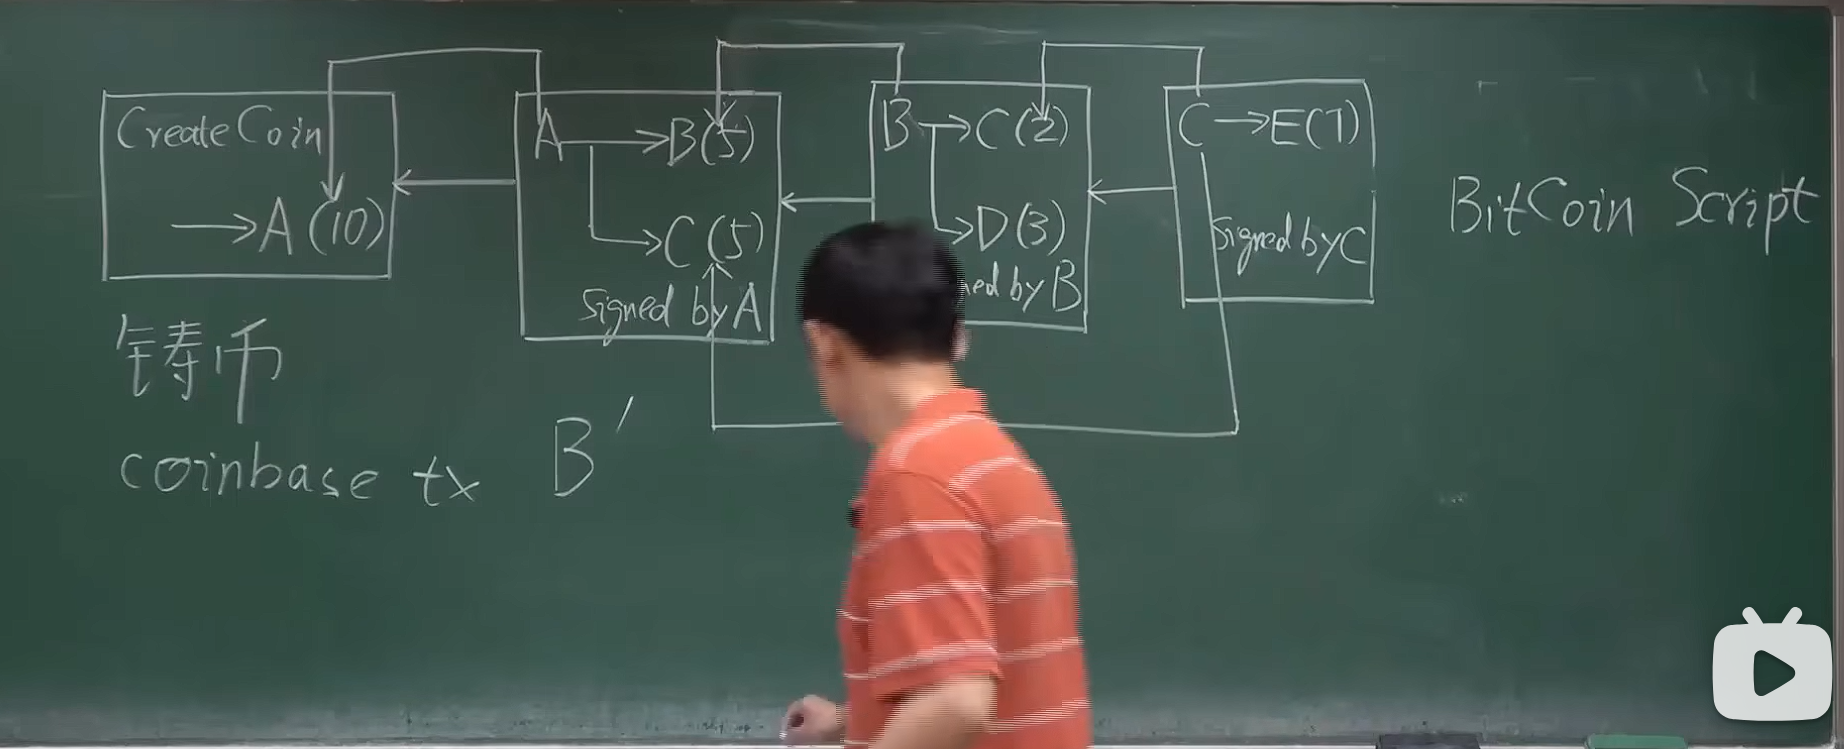 CreateCoin
→A(10)
A→B(5)
→C(5)
Signed by A
B→C(2)
→D(3)
ned by B
C→E(7)
Signed by C
BitCoin Script
铸币
coinbase tx
B'